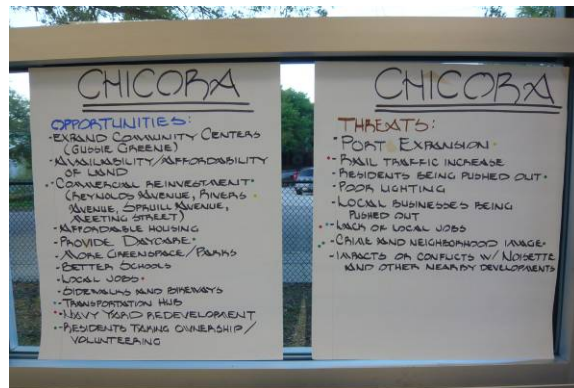 CHICORA
OPPORTUNITIES:
·EXPAND COMMUNITY CENTERS
(GUSSIE GREENE)
·AVAILABILITY/AFFORDABILITY
OF LAND
·COMMERCIAL REINVESTMENT
(REYNOLDS AVENUE, RIVERS
AVENUE, SPRUILL AVENUE,
MEETING STREET)
·AFFORDABLE HOUSING
·PROVIDE DAYCARE
·MORE GREENSPACE/PARKS
·BETTER SCHOOLS
·LOCAL JOBS
·SIDEWALKS AND BIKEWAYS
·TRANSPORTATION HUB
·NAVY YARD REDEVELOPMENT
·RESIDENTS TAKING OWNERSHIP/
VOLUNTEERING
CHICORA
THREATS:
·PORT EXPANSION
·RAIL TRAFFIC INCREASE
·RESIDENTS BEING PUSHED OUT
·POOR LIGHTING
·LOCAL BUSINESSES BEING
PUSHED OUT
·LACK OF LOCAL JOBS
·CRIME AND NEIGHBORHOOD IMAGE
·IMPACTS OR CONFLICTS W/ NOISETTE
AND OTHER NEARBY DEVELOPMENTS